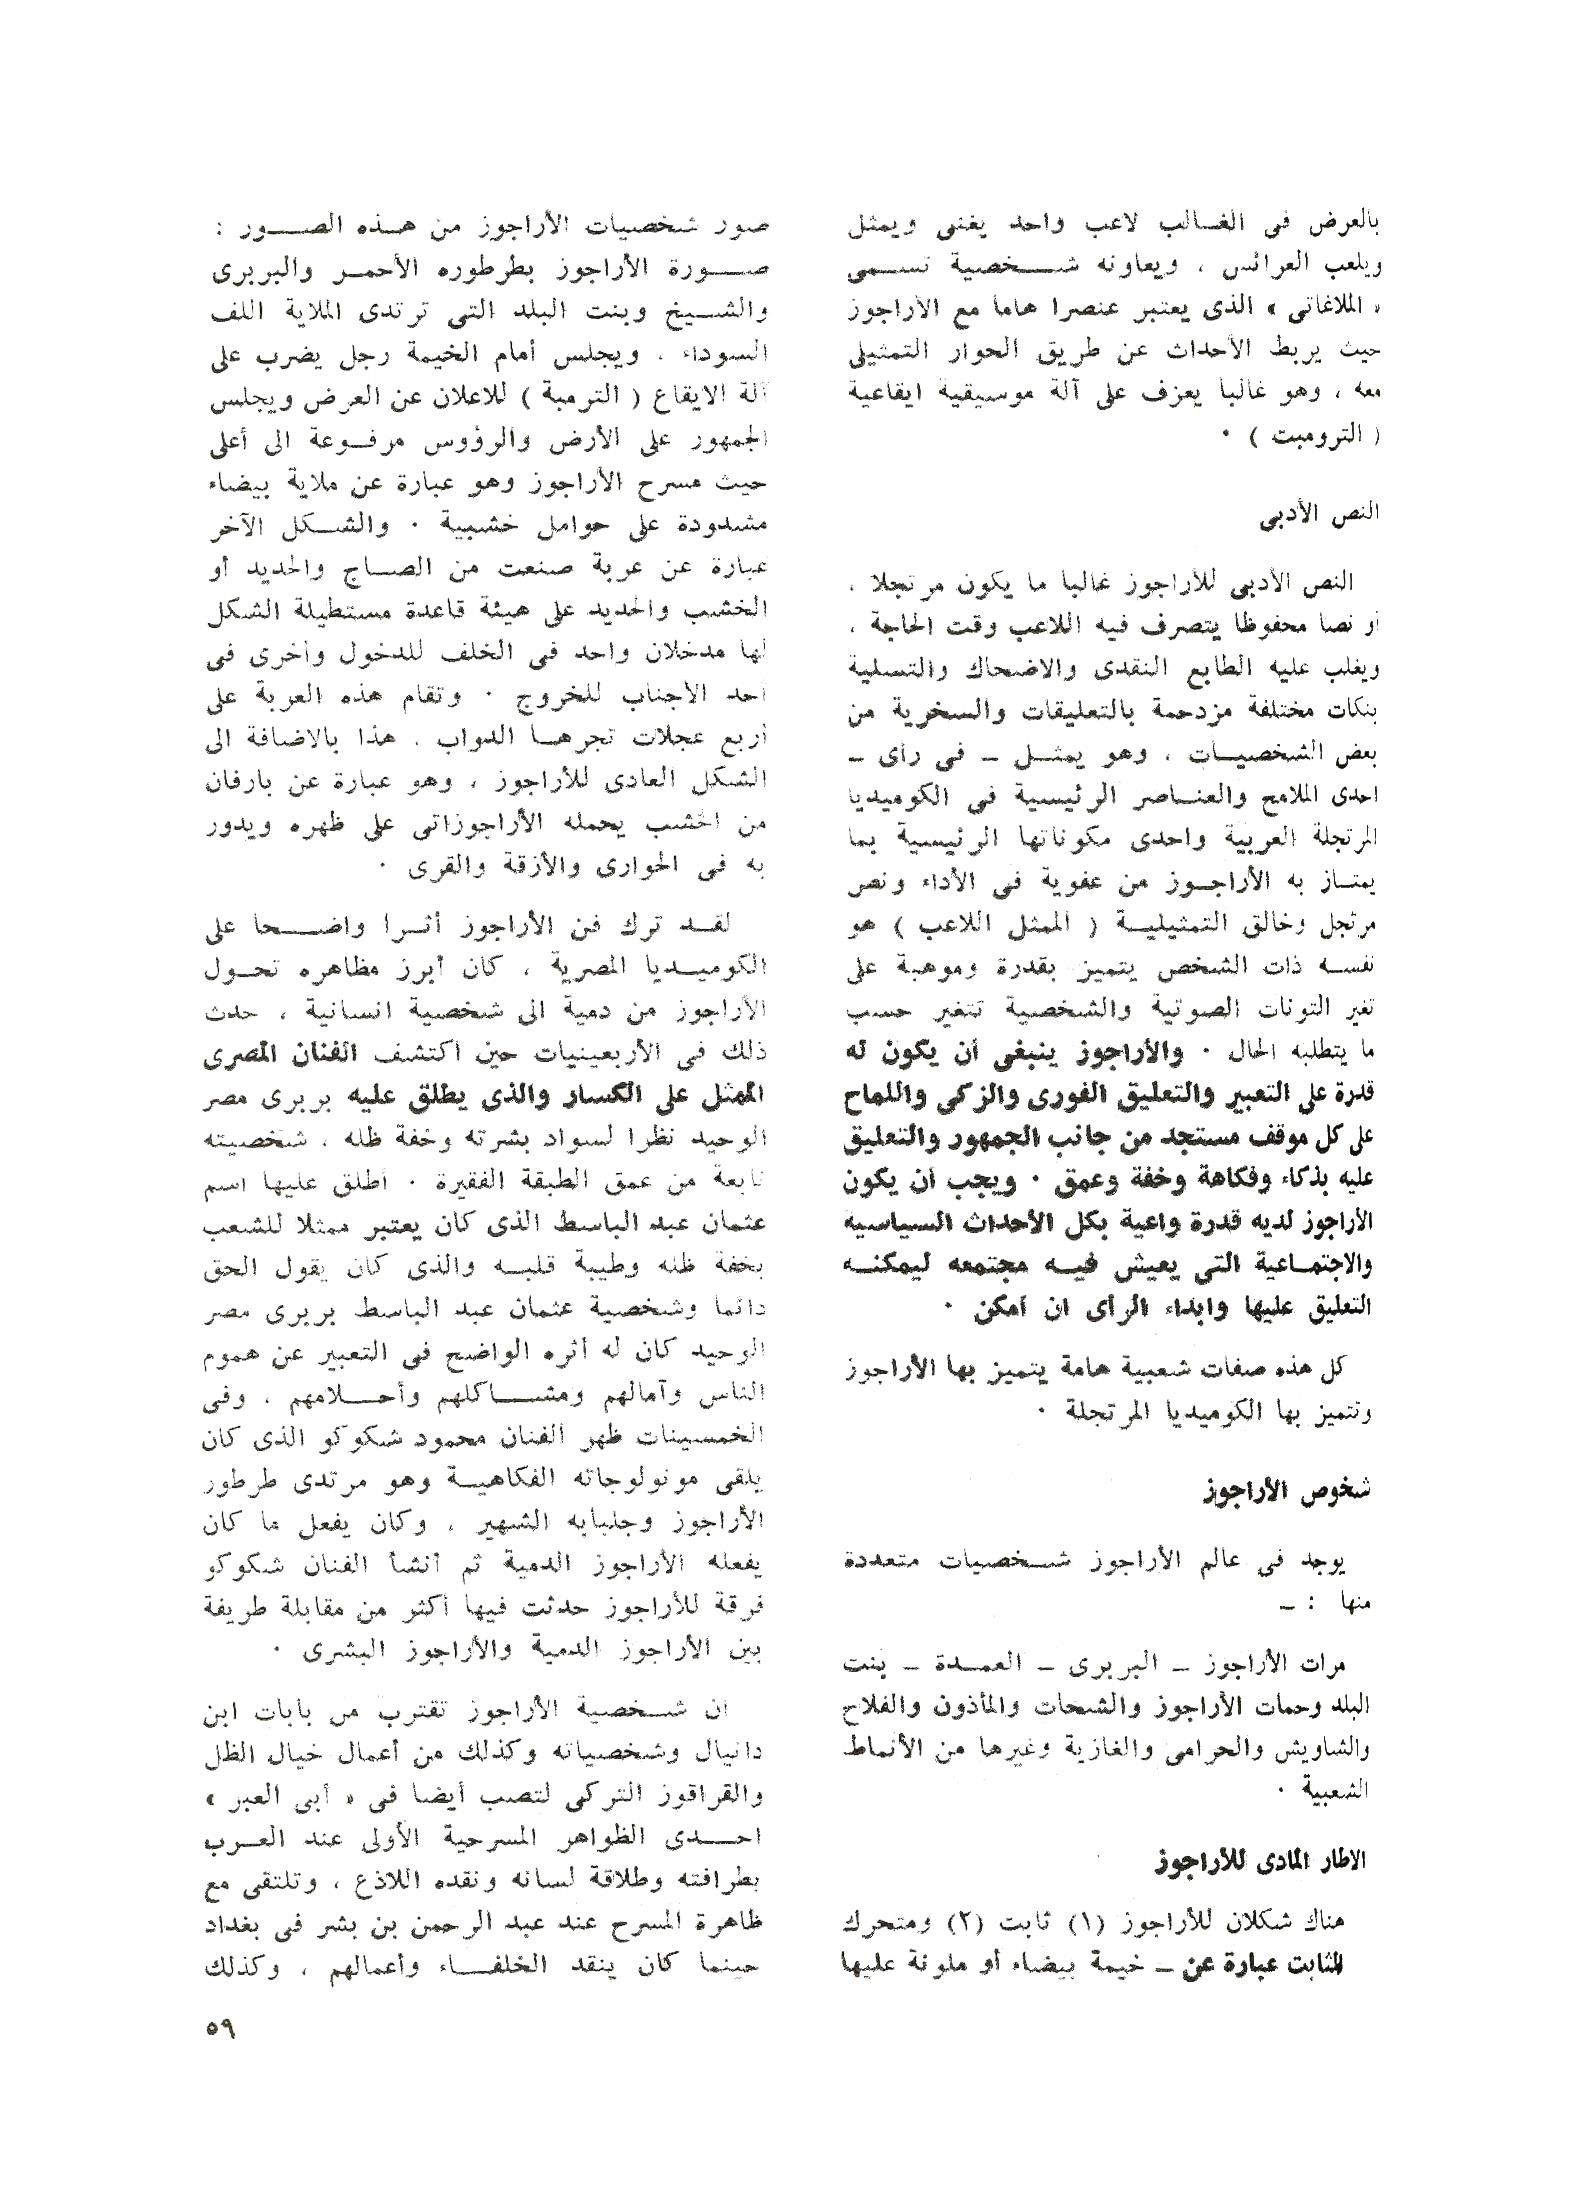 بالعرض فى الغالب لاعب واحد يغنى ويمثل
ويلعب العرائس ، ويعاونه شخصية تسمى
« الملاغاتى » الذى يعتبر عنصرا هاما مع الأراجوز
حيث يربط الأحداث عن طريق الحوار التمثيلى
معه ، وهو غالبا يعزف على آلة موسيقية ايقاعية
( الترومبت ) .
النص الأدبى
النص الأدبى للأراجوز غالبا ما يكون مرتجلا ،
أو نصا محفوظا يتصرف فيه اللاعب وقت الحاجة ،
ويغلب عليه الطابع النقدى والاضحاك والتسلية
بنكات مختلفة مزدحمة بالتعليقات والسخرية من
بعض الشخصيات ، وهو يمثل – فى رأى –
احدى الملامح والعناصر الرئيسية فى الكوميديا
المرتجلة العربية واحدى مكوناتها الرئيسية بما
يمتاز به الأراجوز من عفوية فى الأداء ونص
مرتجل وخالق التمثيلية ( الممثل اللاعب ) هو
نفسه ذات الشخص يتميز بقدرة وموهبة على
تغير التونات الصوتية والشخصية تتغير حسب
ما يتطلبه الحال . والأراجوز ينبغى أن يكون له
قدرة على التعبير والتعليق الفورى والزكى واللماح
على كل موقف مستجد من جانب الجمهور والتعليق
عليه بذكاء وفكاهة وخفة وعمق . ويجب أن يكون
الأراجوز لديه قدرة واعية بكل الأحداث السياسية
والاجتماعية التى يعيش فيه مجتمعه ليمكنه
التعليق عليها وابداء الرأى ان أمكن .
كل هذه صفات شعبية هامة يتميز بها الأراجوز
وتتميز بها الكوميديا المرتجلة .
شخوص الأراجوز
يوجد فى عالم الأراجوز شخصيات متعددة
منها : –
مرات الأراجوز – البربرى – العمدة – بنت
البلد وحمات الأراجوز والشحات والمأذون والفلاح
والشاويش والحرامى والغازية وغيرها من الأنماط
الشعبية .
الاطار المادى للأراجوز
هناك شكلان للأراجوز (١) ثابت (٢) ومتحرك
للثابت عبارة عن – خيمة بيضاء أو ملونة عليها
صور شخصيات الأراجوز من هذه الصور :
صورة الأراجوز بطرطوره الأحمر والبربرى
والشيخ وبنت البلد التى ترتدى الملاية اللف
السوداء ، ويجلس أمام الخيمة رجل يضرب على
آلة الايقاع ( الترمبة ) للاعلان عن العرض ويجلس
الجمهور على الأرض والرؤوس مرفوعة الى أعلى
حيث مسرح الأراجوز وهو عبارة عن ملاية بيضاء
مشدودة على حوامل خشبية . والشكل الآخر
عبارة عن عربة صنعت من الصاج والحديد أو
الخشب والحديد على هيئة قاعدة مستطيلة الشكل
لها مدخلان واحد فى الخلف للدخول وأخرى فى
أحد الأجناب للخروج . وتقام هذه العربة على
أربع عجلات تجرها الدواب ، هذا بالاضافة الى
الشكل العادى للأراجوز ، وهو عبارة عن بارفان
من الخشب يحمله الأراجوزاتى على ظهره ويدور
به فى الحوارى والأزقة والقرى .
لقد ترك فن الأراجوز أثرا واضحا على
الكوميديا المصرية ، كان أبرز مظاهره تحول
الأراجوز من دمية الى شخصية انسانية ، حدث
ذلك فى الأربعينيات حين اكتشف الفنان المصرى
الممثل على الكسار والذى يطلق عليه بربرى مصر
الوحيد نظرا لسواد بشرته وخفة ظله ، شخصيته
نابعة من عمق الطبقة الفقيرة . أطلق عليها اسم
عثمان عبد الباسط الذى كان يعتبر ممثلا للشعب
بخفة ظله وطيبة قلبه والذى كان يقول الحق
دائما وشخصية عثمان عبد الباسط بربرى مصر
الوحيد كان له أثره الواضح فى التعبير عن هموم
الناس وآمالهم ومشاكلهم وأحلامهم ، وفى
الخمسينات ظهر الفنان محمود شكوكو الذى كان
يلقى مونولوجاته الفكاهية وهو مرتدى طرطور
الأراجوز وجلبابه الشهير ، وكان يفعل ما كان
يفعله الأراجوز الدمية ثم أنشأ الفنان شكوكو
فرقة للأراجوز حدثت فيها أكثر من مقابلة طريفة
بين الأراجوز الدمية والأراجوز البشرى .
ان شخصية الأراجوز تقترب من بابات ابن
دانيال وشخصياته وكذلك من أعمال خيال الظل
والقراقوز التركى لتصب أيضا فى « أبى العبر »
احدى الظواهر المسرحية الأولى عند العرب
بطرافته وطلاقة لسانه ونقده اللاذع ، وتلتقى مع
ظاهرة المسرح عند عبد الرحمن بن بشر فى بغداد
حينما كان ينقد الخلفاء وأعمالهم ، وكذلك
٥٩